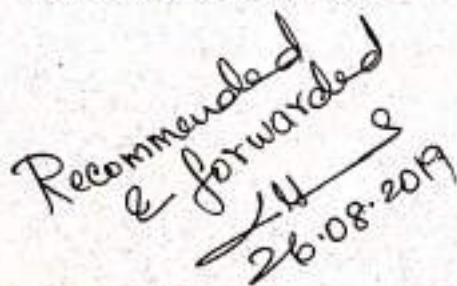 Recommended
& forwarded
26.08.2019